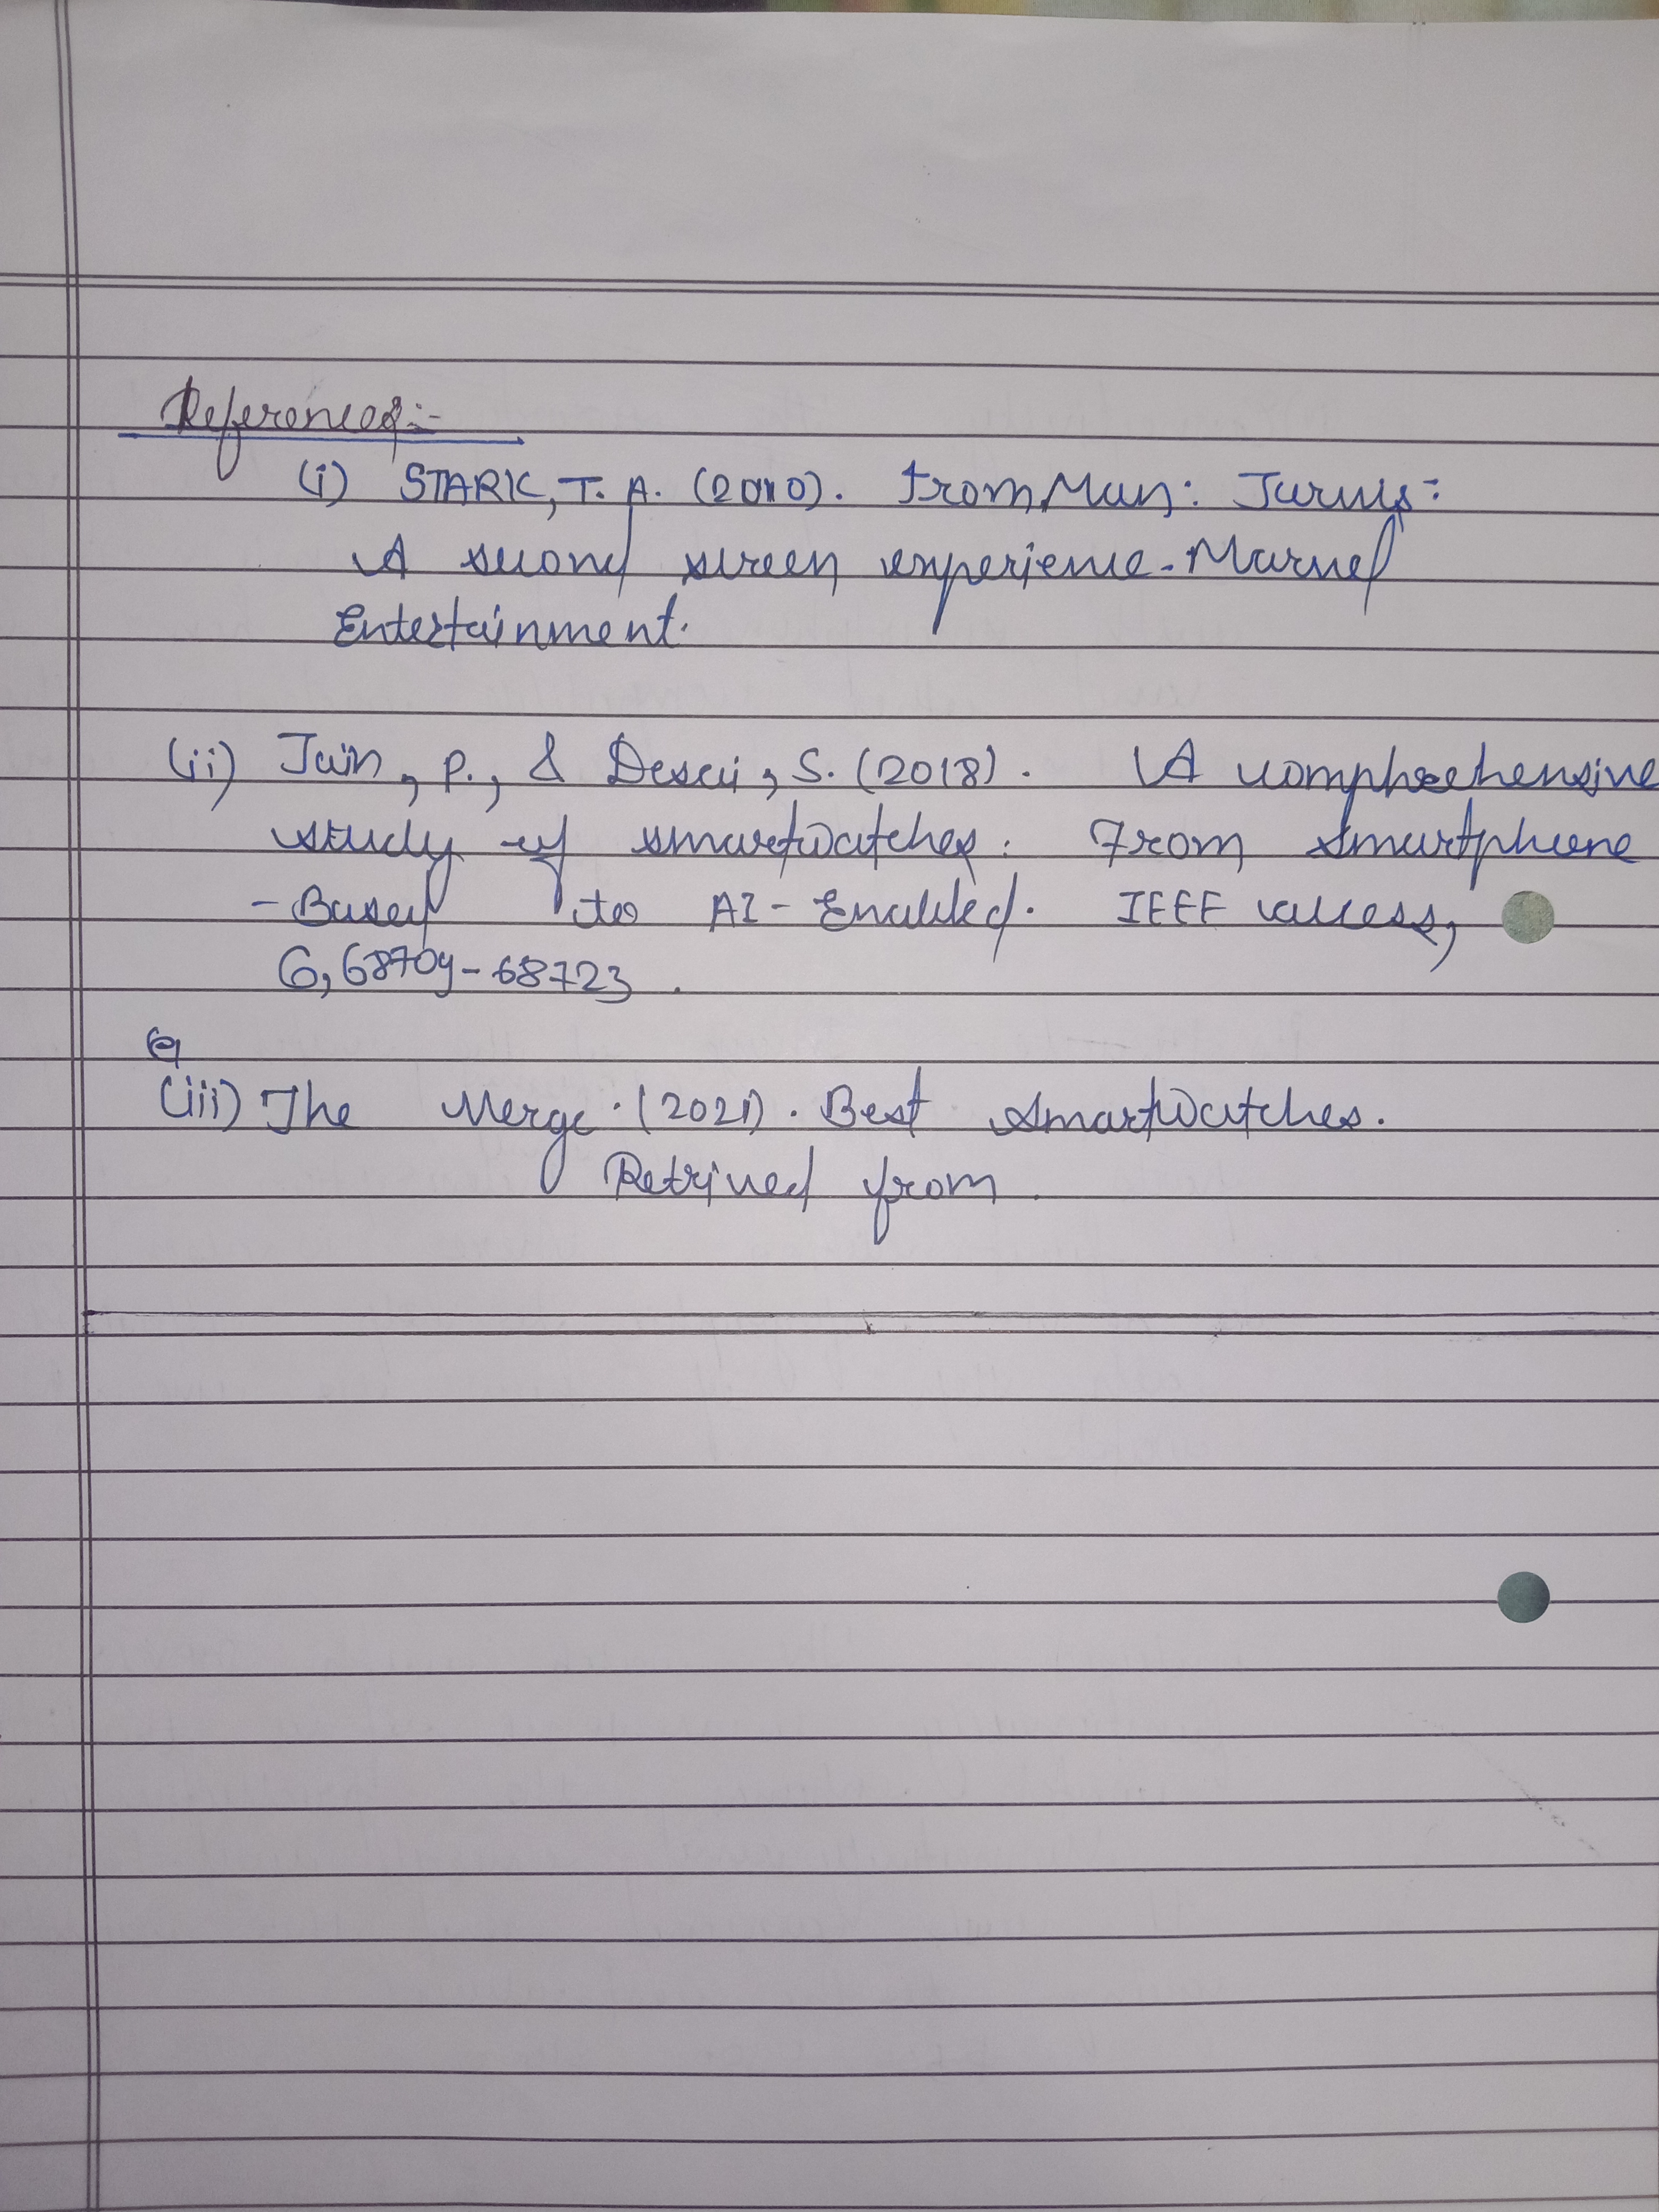 References:-
(i) STARK, T. A. (2010). IronMan: Jarvis:
A second screen experience. Marvel
Entertainment.
(ii) Jain, P., & Desai, S. (2018). A comprehensive
study of smartwatches: From smartphone
-Based to AI-Enabled. IEEE access,
6, 68709-68723.
(iii) The Merge. (2021). Best SmartWatches.
Retrived from.